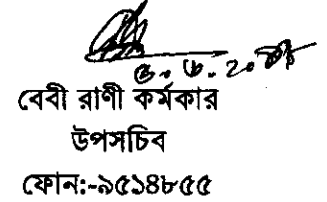 বেবী রাণী কর্মকার
উপসচিব
ফোন:-৯৫১৪৮৫৫